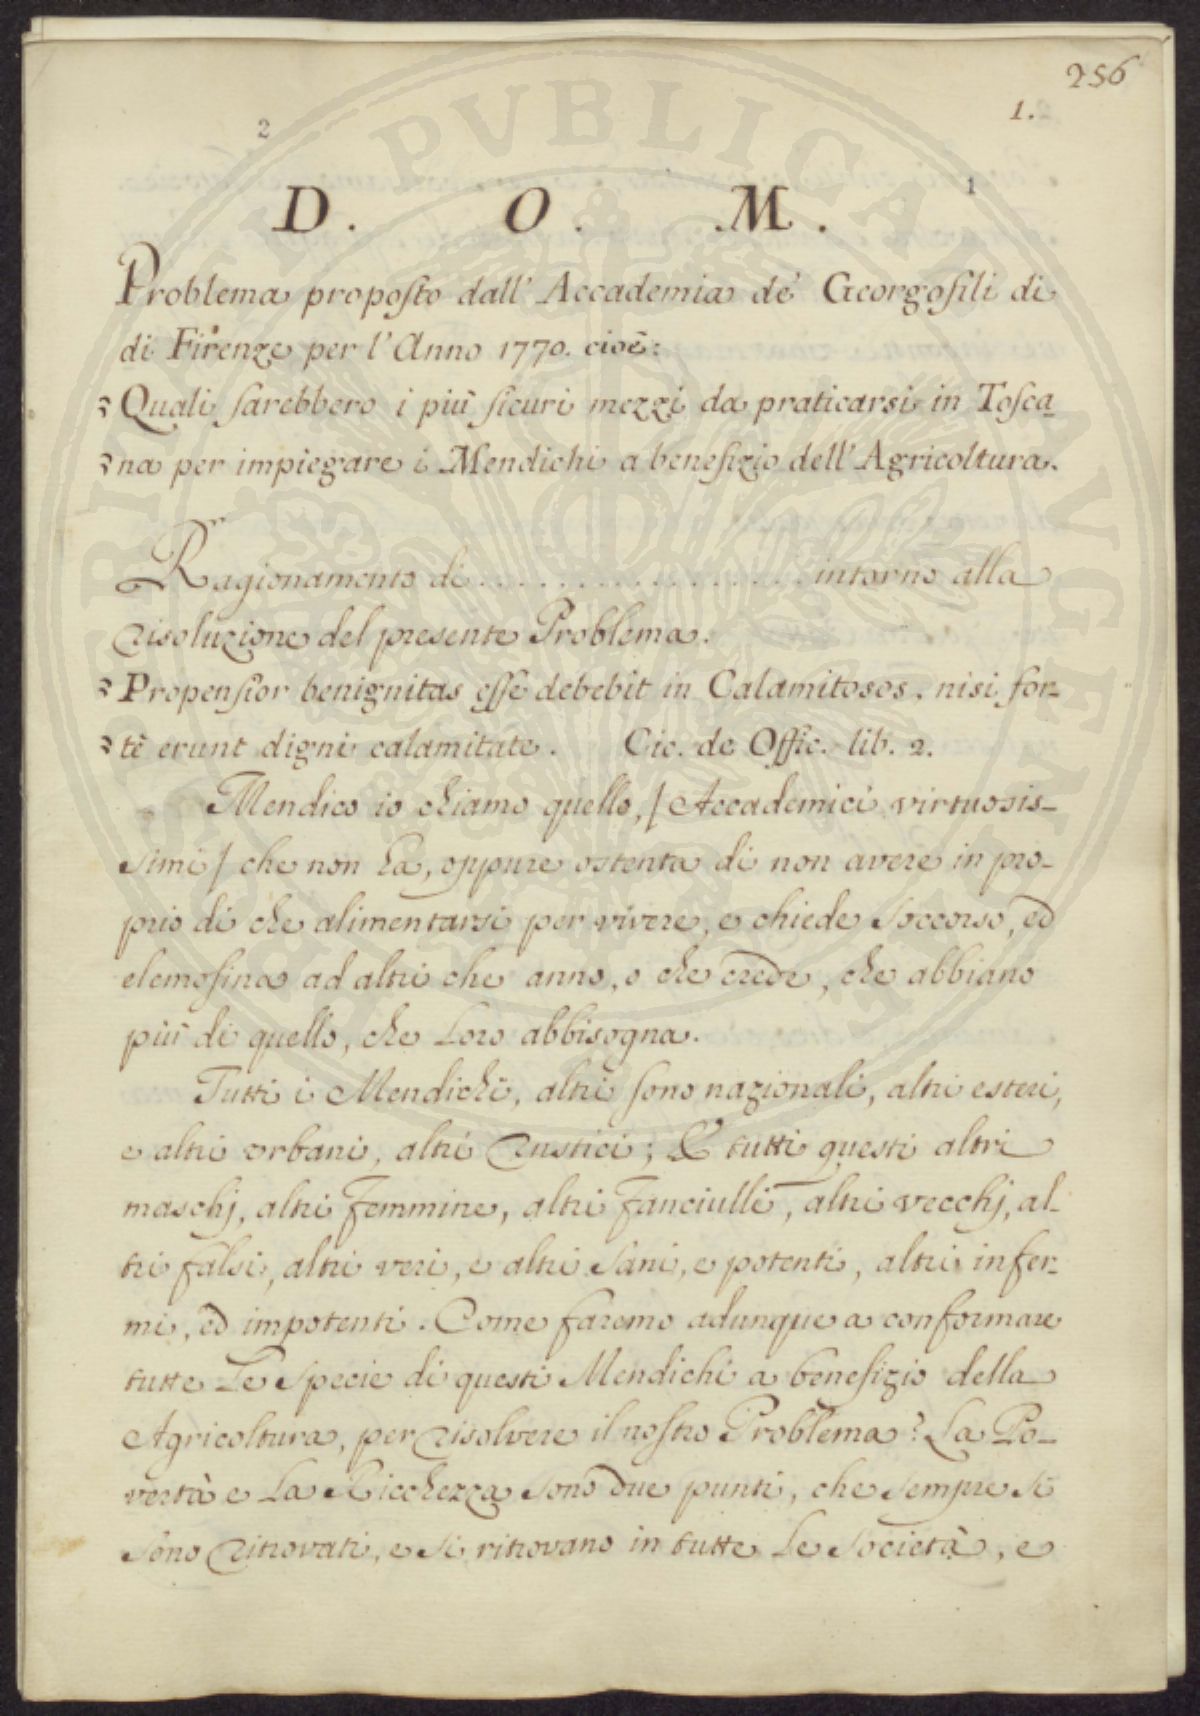 256
1.
2
1
D. O. M.
Problema proposto dall' Accademia de' Georgofili di
di Firenze per l'Anno 1770. cioè:
Quali sarebbero i più sicuri mezzi da praticarsi in Tosca-
na per impiegare i Mendichi a benefizio dell'Agricoltura.
Ragionamento di . . . . . . . . . . . . . . . . . intorno alla
risoluzione del presente Problema.
Propensior benignitas esse debebit in Calamitosos. nisi for-
tè erunt digni calamitate. Cic. de Offic. lib. 2.
Mendico io chiamo quello, / Accademici virtuosis-
simi / che non ha, oppure ostenta di non avere in pro-
prio di che alimentarsi per vivere, e chiede soccorso, ed
elemosina ad altri che anno, o che crede, che abbiano
più di quello, che loro abbisogna.
Tutti i Mendichi, altri sono nazionali, altri esteri,
e altri urbani, altri rustici; E tutti questi altri
maschj, altri femmine, altri fanciulli, altri vecchj, al-
tri falsi, altri veri, e altri sani, e potenti, altri infer-
mi, ed impotenti. Come faremo adunque a conformare
tutte le specie di questi Mendichi a benefizio della
Agricoltura, per risolvere il nostro Problema? La Po-
vertà e la Ricchezza sono due punti, che sempre si
sono ritrovati, e si ritrovano in tutte le società, e
PROSPERITATI PVBLICAE AVGENDAE